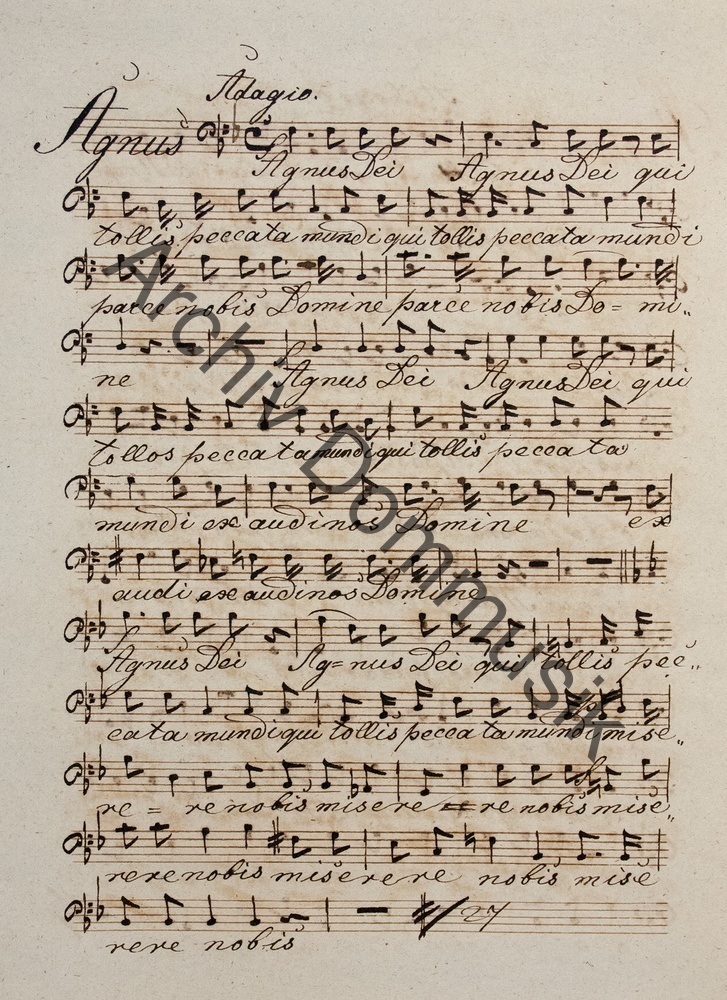 Adagio.
Agnus
Agnus Dei Agnus Dei qui
tollis peccata mundi qui tollis peccata mundi
parce nobis Domine parce nobis Do= mi„
ne Agnus Dei Agnus Dei qui
tollos peccata mundi qui tollis peccata
mundi ex audi nos Domine ex
audi ex audi nos Domine
Agnus Dei Ag= nus Dei qui tollis pec„
cata mundi qui tollis peccata mundi mise„
re = re nobis misere = re nobis mise„
rere nobis miserere nobis mise
rere nobis
27
Archiv Dommusik